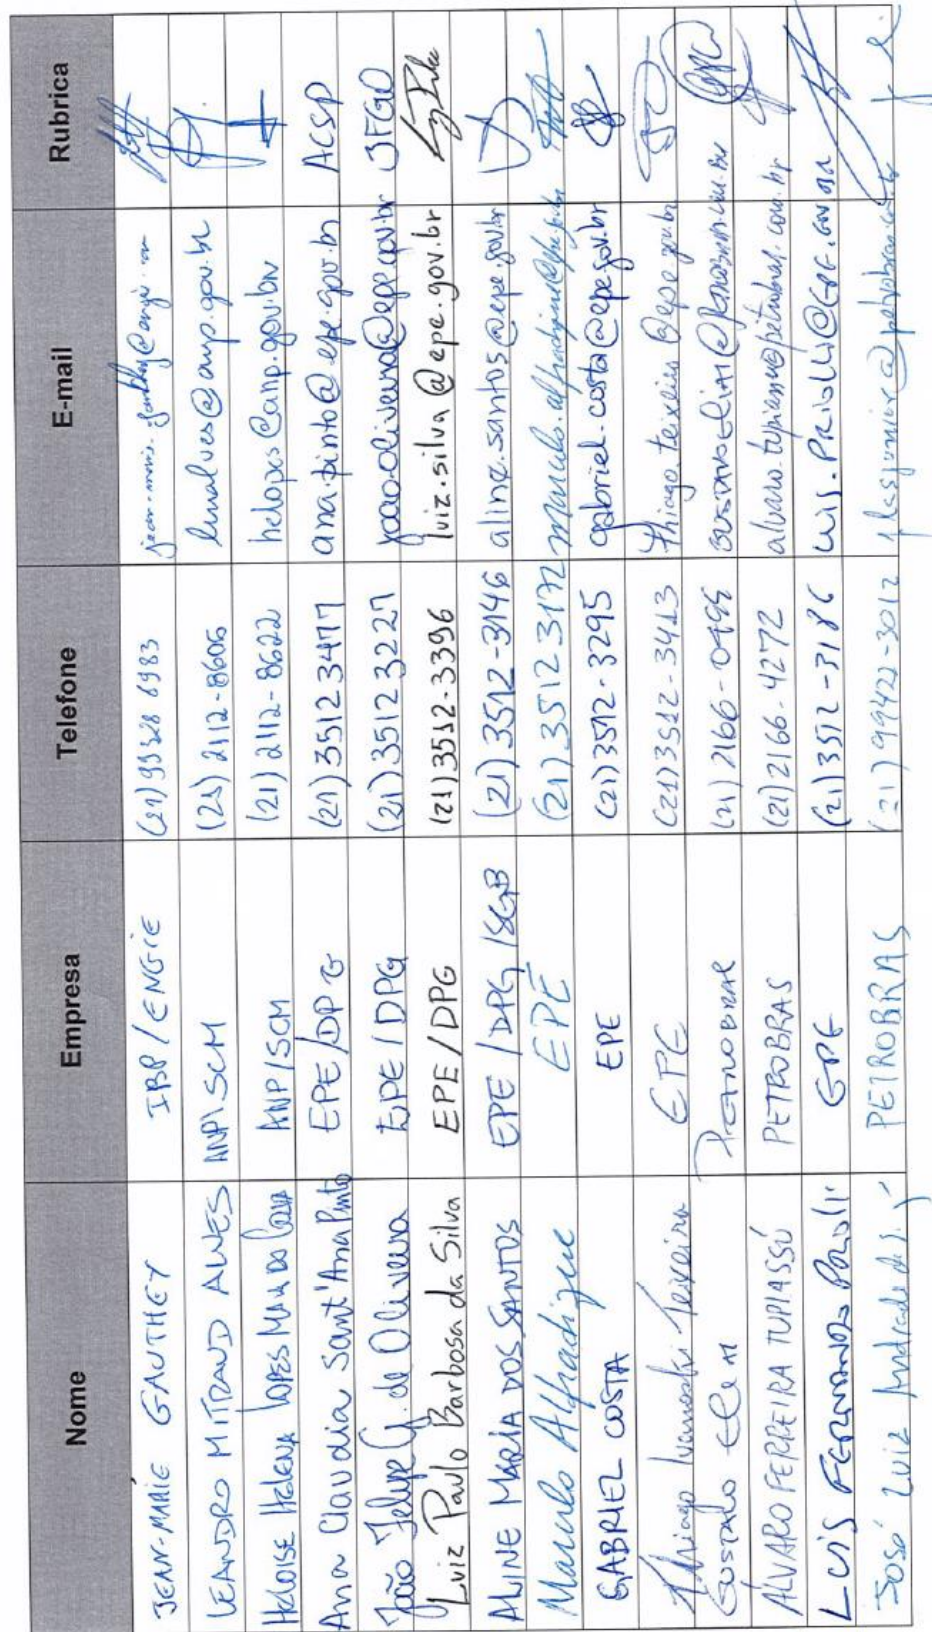 Nome Empresa Telefone E-mail Rubrica
JEAN-MARIE GAUTHEY IBP / ENGIE
LEANDRO MITRAUD ALVES ANP\SCM (21) 2112-8606 lmalves@anp.gov.br
HELOISE HELENA LOPES MAIA DA ANP/SCM (21) 2112-8622 helopes@anp.gov.br
Ana Claudia Sant'Ana Pinto EPE/DPG (21) 3512 3477 ana.pinto@epe.gov.br ACSP
João Felipe G. de Oliveira EPE / DPG (21) 3512 3227 joao.oliveira@epe.gov.br JFGO
Luiz Paulo Barbosa da Silva EPE / DPG (21) 3512-3396 luiz.silva@epe.gov.br
ALINE MARIA DOS SANTOS EPE / DPG / SGB (21) 3512-3146 aline.santos@epe.gov.br
Marcelo Alfradique EPE (21) 3512 3172 marcelo.alfradique@epe.gov.br
GABRIEL COSTA EPE (21) 3512-3295 gabriel.costa@epe.gov.br
Thiago Ivanoski Teixeira EPE (21) 3512-3413 thiago.teixeira@epe.gov.br
GUSTAVO PETROBRAS (21) 2166-
ÁLVARO FERREIRA TUPIASSÚ PETROBRAS (21) 2166-4272 alvaro.tupiassu@petrobras.com.br
LUIS FERNANDO PRIOLLI EPE (21) 3512-3186 LUIS.PRIOLLI@EPE.GOV.BR
José Luiz Andrade PETROBRAS (21) 99422-3012